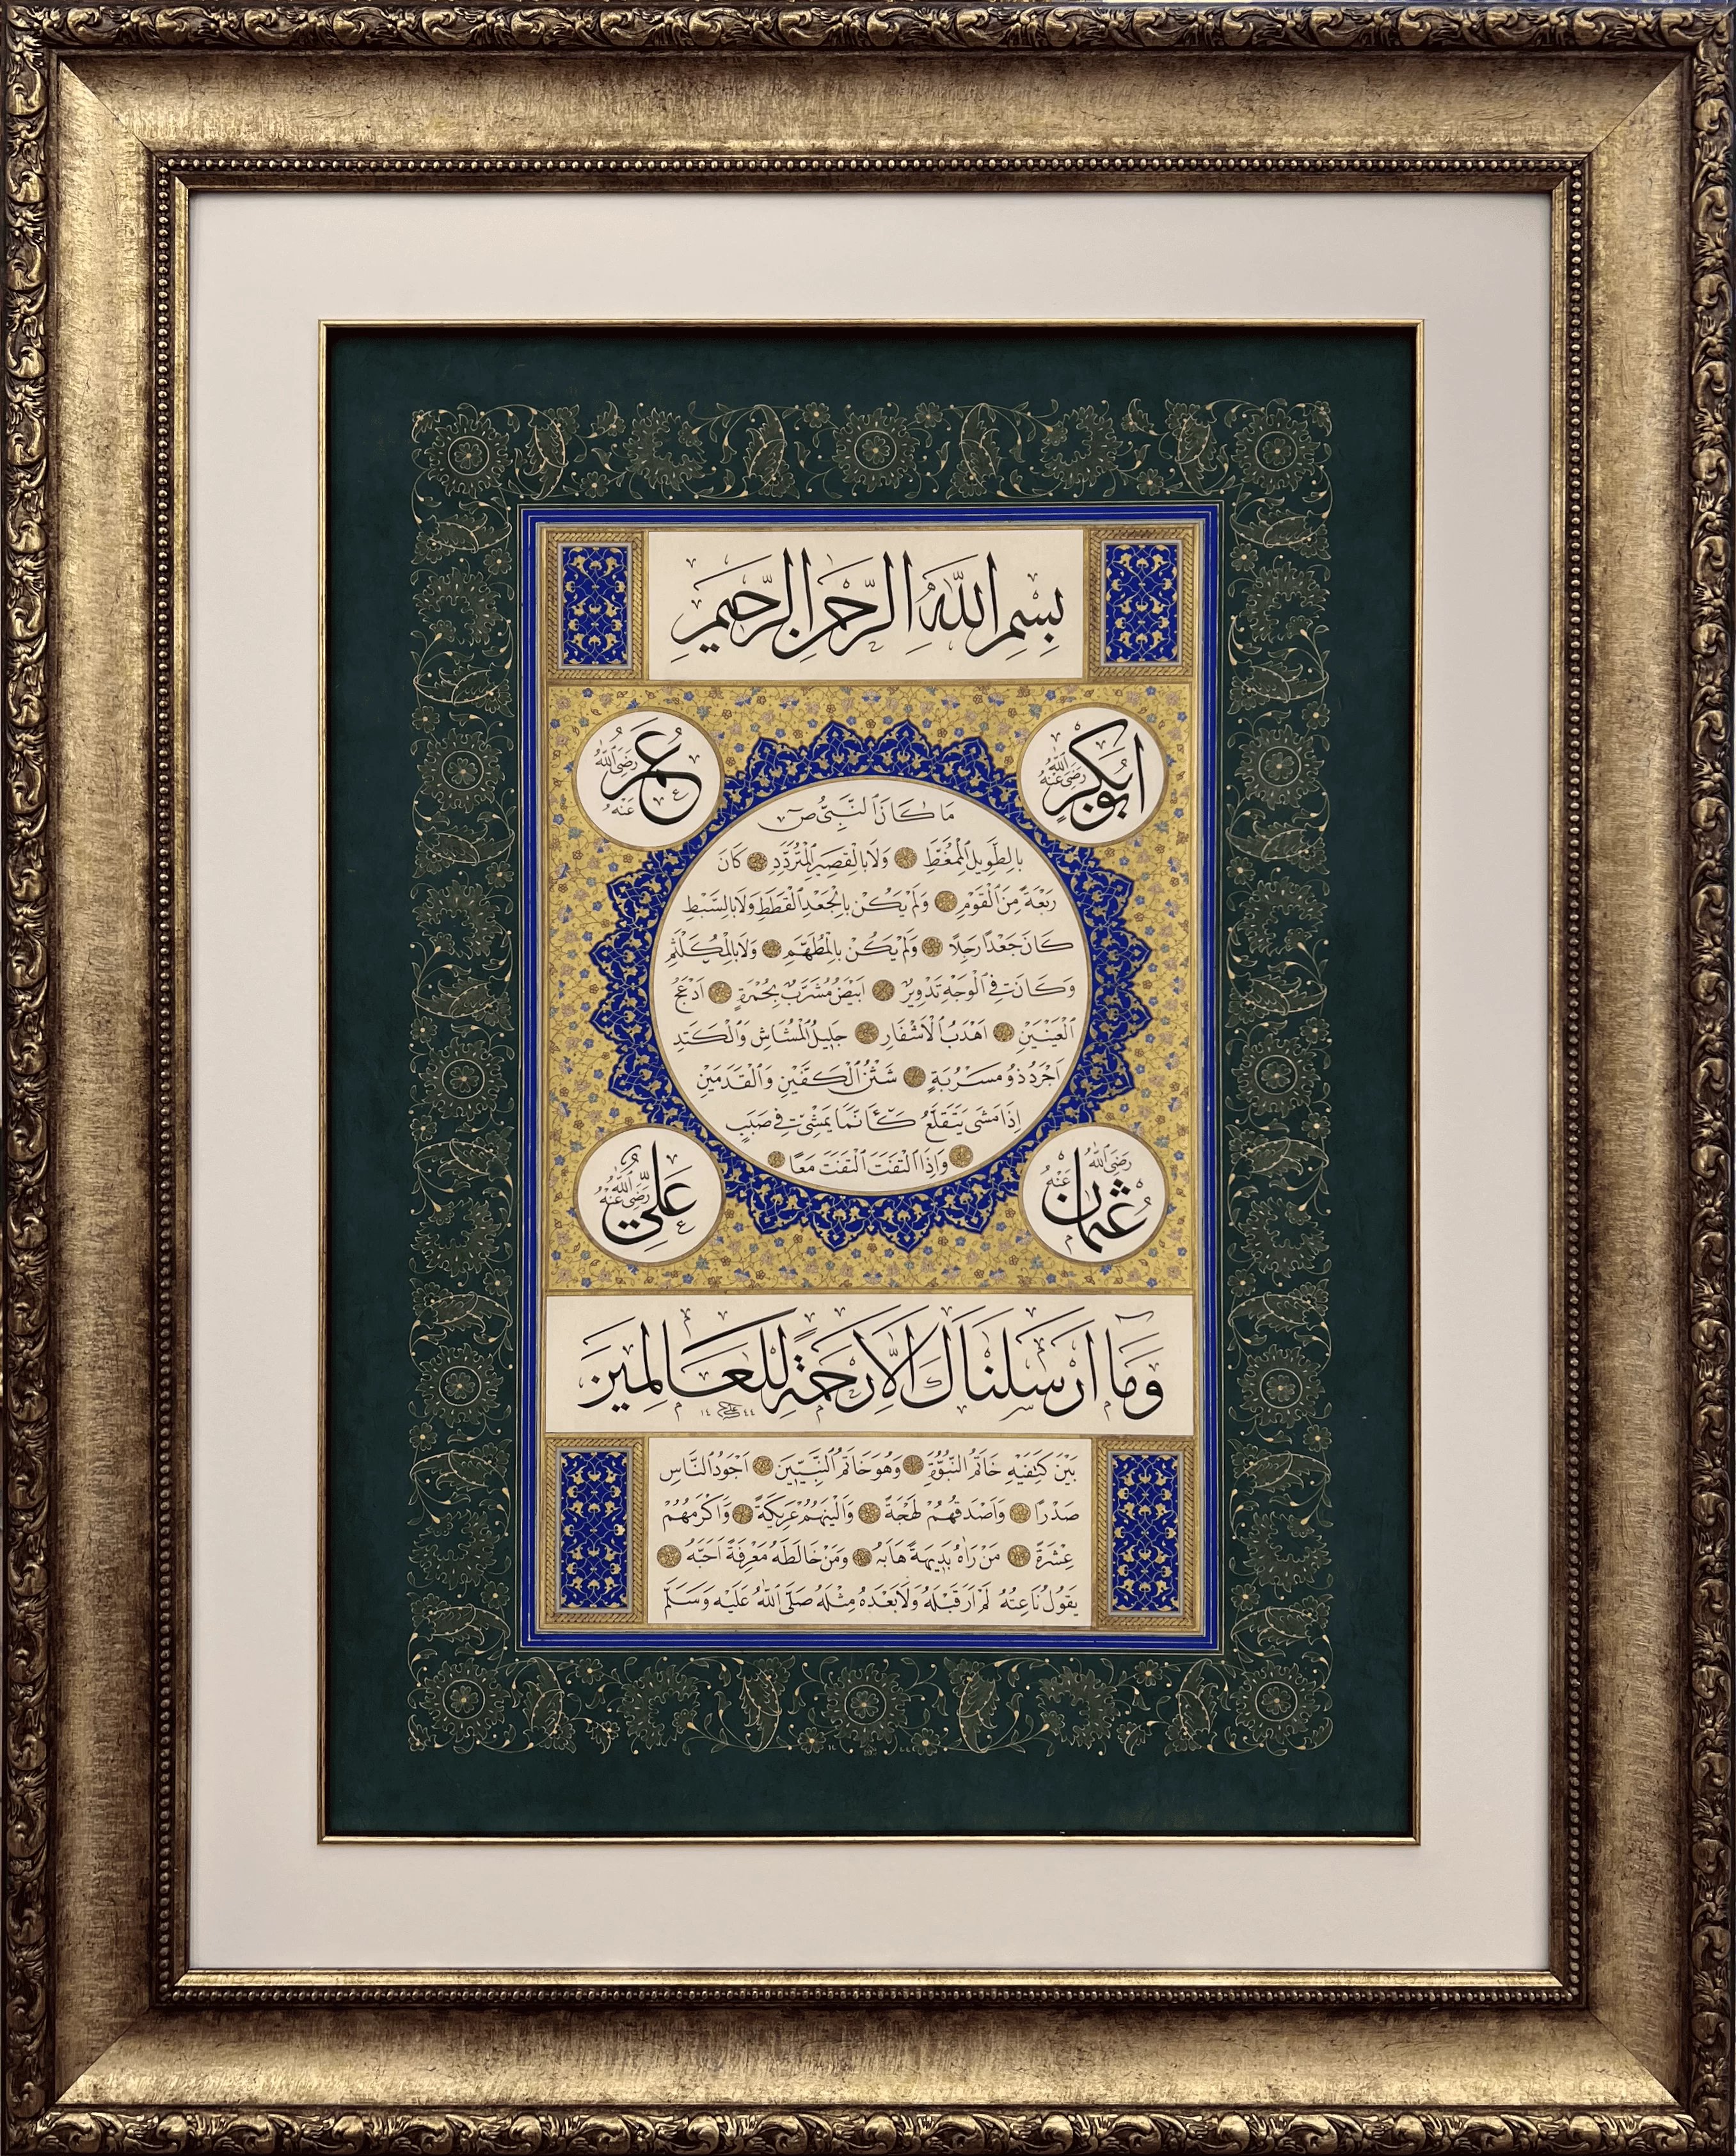 بِسْمِ اللّٰهِ الرَّحْمٰنِ الرَّحِيمِ
ابُوبَكْرٍ رَضِيَ اللّٰهُ عَنْهُ
عُمَر رَضِيَ اللّٰهُ عَنْهُ
مَا كَانَ النَّبِيُّ ص
بِالطَّوِيلِ الْمُمَغَّطِ وَلَا بِالْقَصِيرِ الْمُتَرَدِّدِ كَانَ
رَبْعَةً مِنَ الْقَوْمِ وَلَمْ يَكُنْ بِالْجَعْدِ الْقَطَطِ وَلَا بِالسَّبْطِ
كَانَ جَعْدًا رَجِلًا وَلَمْ يَكُنْ بِالْمُطَهَّمِ وَلَا بِالْمُكَلْثَمِ
وَكَانَ فِي الْوَجْهِ تَدْوِيرٌ اَبْيَضُ مُشْرَبٌ بِحُمْرَةٍ اَدْعَجُ
الْعَيْنَيْنِ اَهْدَبُ الْاَشْفَارِ جَلِيلُ الْمُشَاشِ وَالْكَتَدِ
اَجْرَدُ ذُو مَسْرُبَةٍ شَثْنُ الْكَفَّيْنِ وَالْقَدَمَيْنِ
اِذَا مَشَى يَتَقَلَّعُ كَاَنَّمَا يَمْشِي فِي صَبَبٍ
وَاِذَا الْتَفَتَ الْتَفَتَ مَعًا
عُثْمَان رَضِيَ اللّٰهُ عَنْهُ
عَلِيّ رَضِيَ اللّٰهُ عَنْهُ
وَمَا اَرْسَلْنَاكَ اِلَّا رَحْمَةً لِلْعَالَمِينَ
١٤٤٤
بَيْنَ كَتِفَيْهِ خَاتَمُ النُّبُوَّةِ وَهُوَ خَاتَمُ النَّبِيِّينَ اَجْوَدُ النَّاسِ
صَدْرًا وَاَصْدَقُهُمْ لَهْجَةً وَاَلْيَنُهُمْ عَرِيكَةً وَاَكْرَمُهُمْ
عِشْرَةً مَنْ رَاٰهُ بَدِيهَةً هَابَهُ وَمَنْ خَالَطَهُ مَعْرِفَةً اَحَبَّهُ
يَقُولُ نَاعِتُهُ لَمْ اَرَ قَبْلَهُ وَلَا بَعْدَهُ مِثْلَهُ صَلَّى اللّٰهُ عَلَيْهِ وَسَلَّمَ